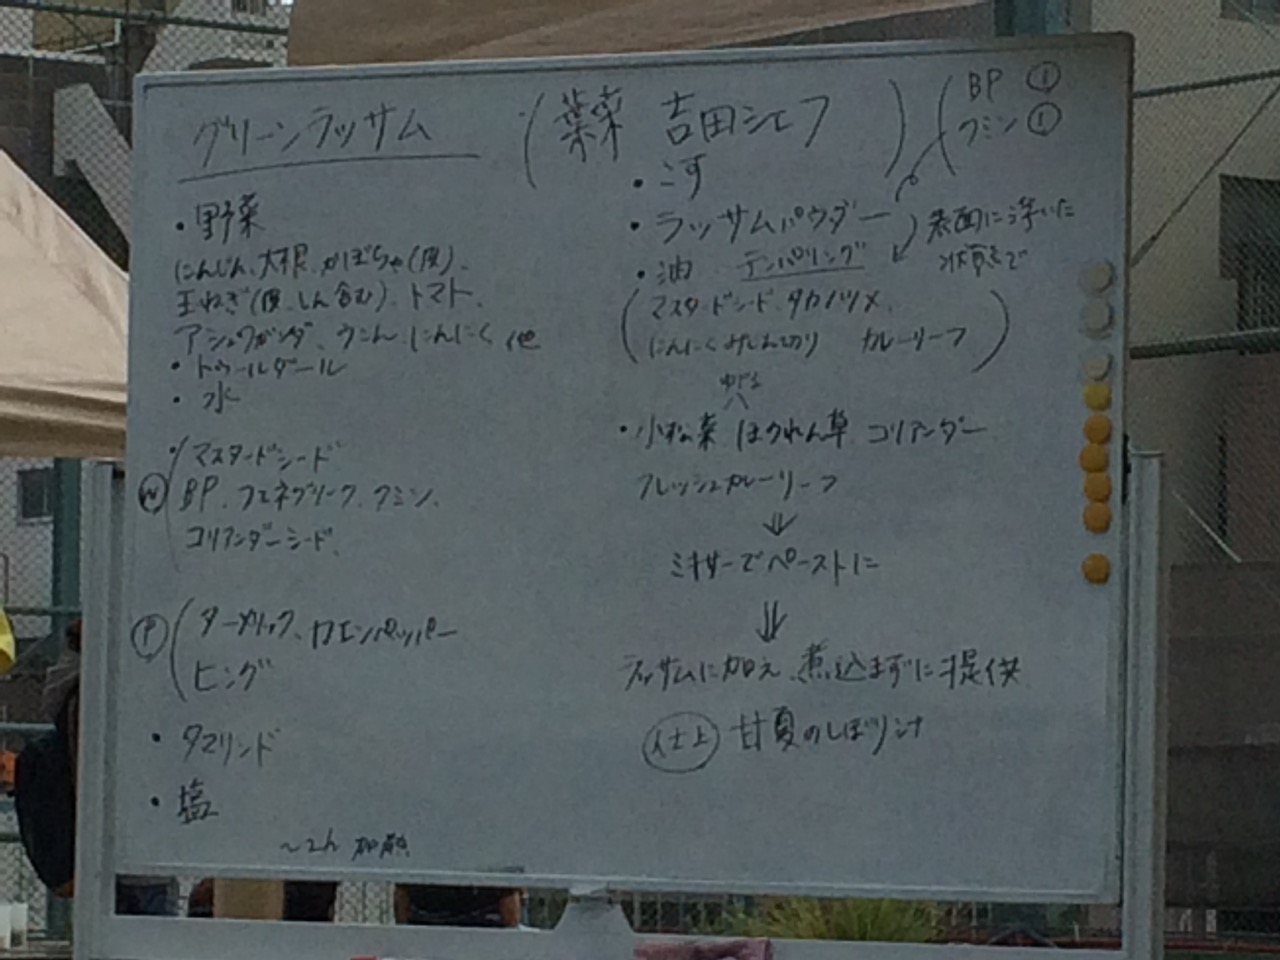 グリーンラッサム
(葉菜 吉田シェフ)
(BP ①
クミン①
・野菜
にんじん、大根、かぼちゃ(皮)、
玉ねぎ(皮、しん含む)、トマト、
アシュワガンダ、ウコン、にんにく 他
・トゥールダール
・水
・マスタードシード
Ⓦ BP、フェネグリーク、クミン、
コリアンダーシード、
Ⓟ ターメリック、カエンペッパー
ヒング
・タマリンド
・塩
〜2h 加熱
・こす
・ラッサムパウダー
表面に浮いた
状態で
・油 テンパリング
(マスタードシード、タカノツメ、
にんにくみじん切り カレーリーフ)
ゆでる
・小松菜 ほうれん草 コリアンダー
フレッシュカレーリーフ
⇓
ミキサーでペーストに
⇓
ラッサムに加え、煮込まずに提供
仕上 甘夏のしぼり汁